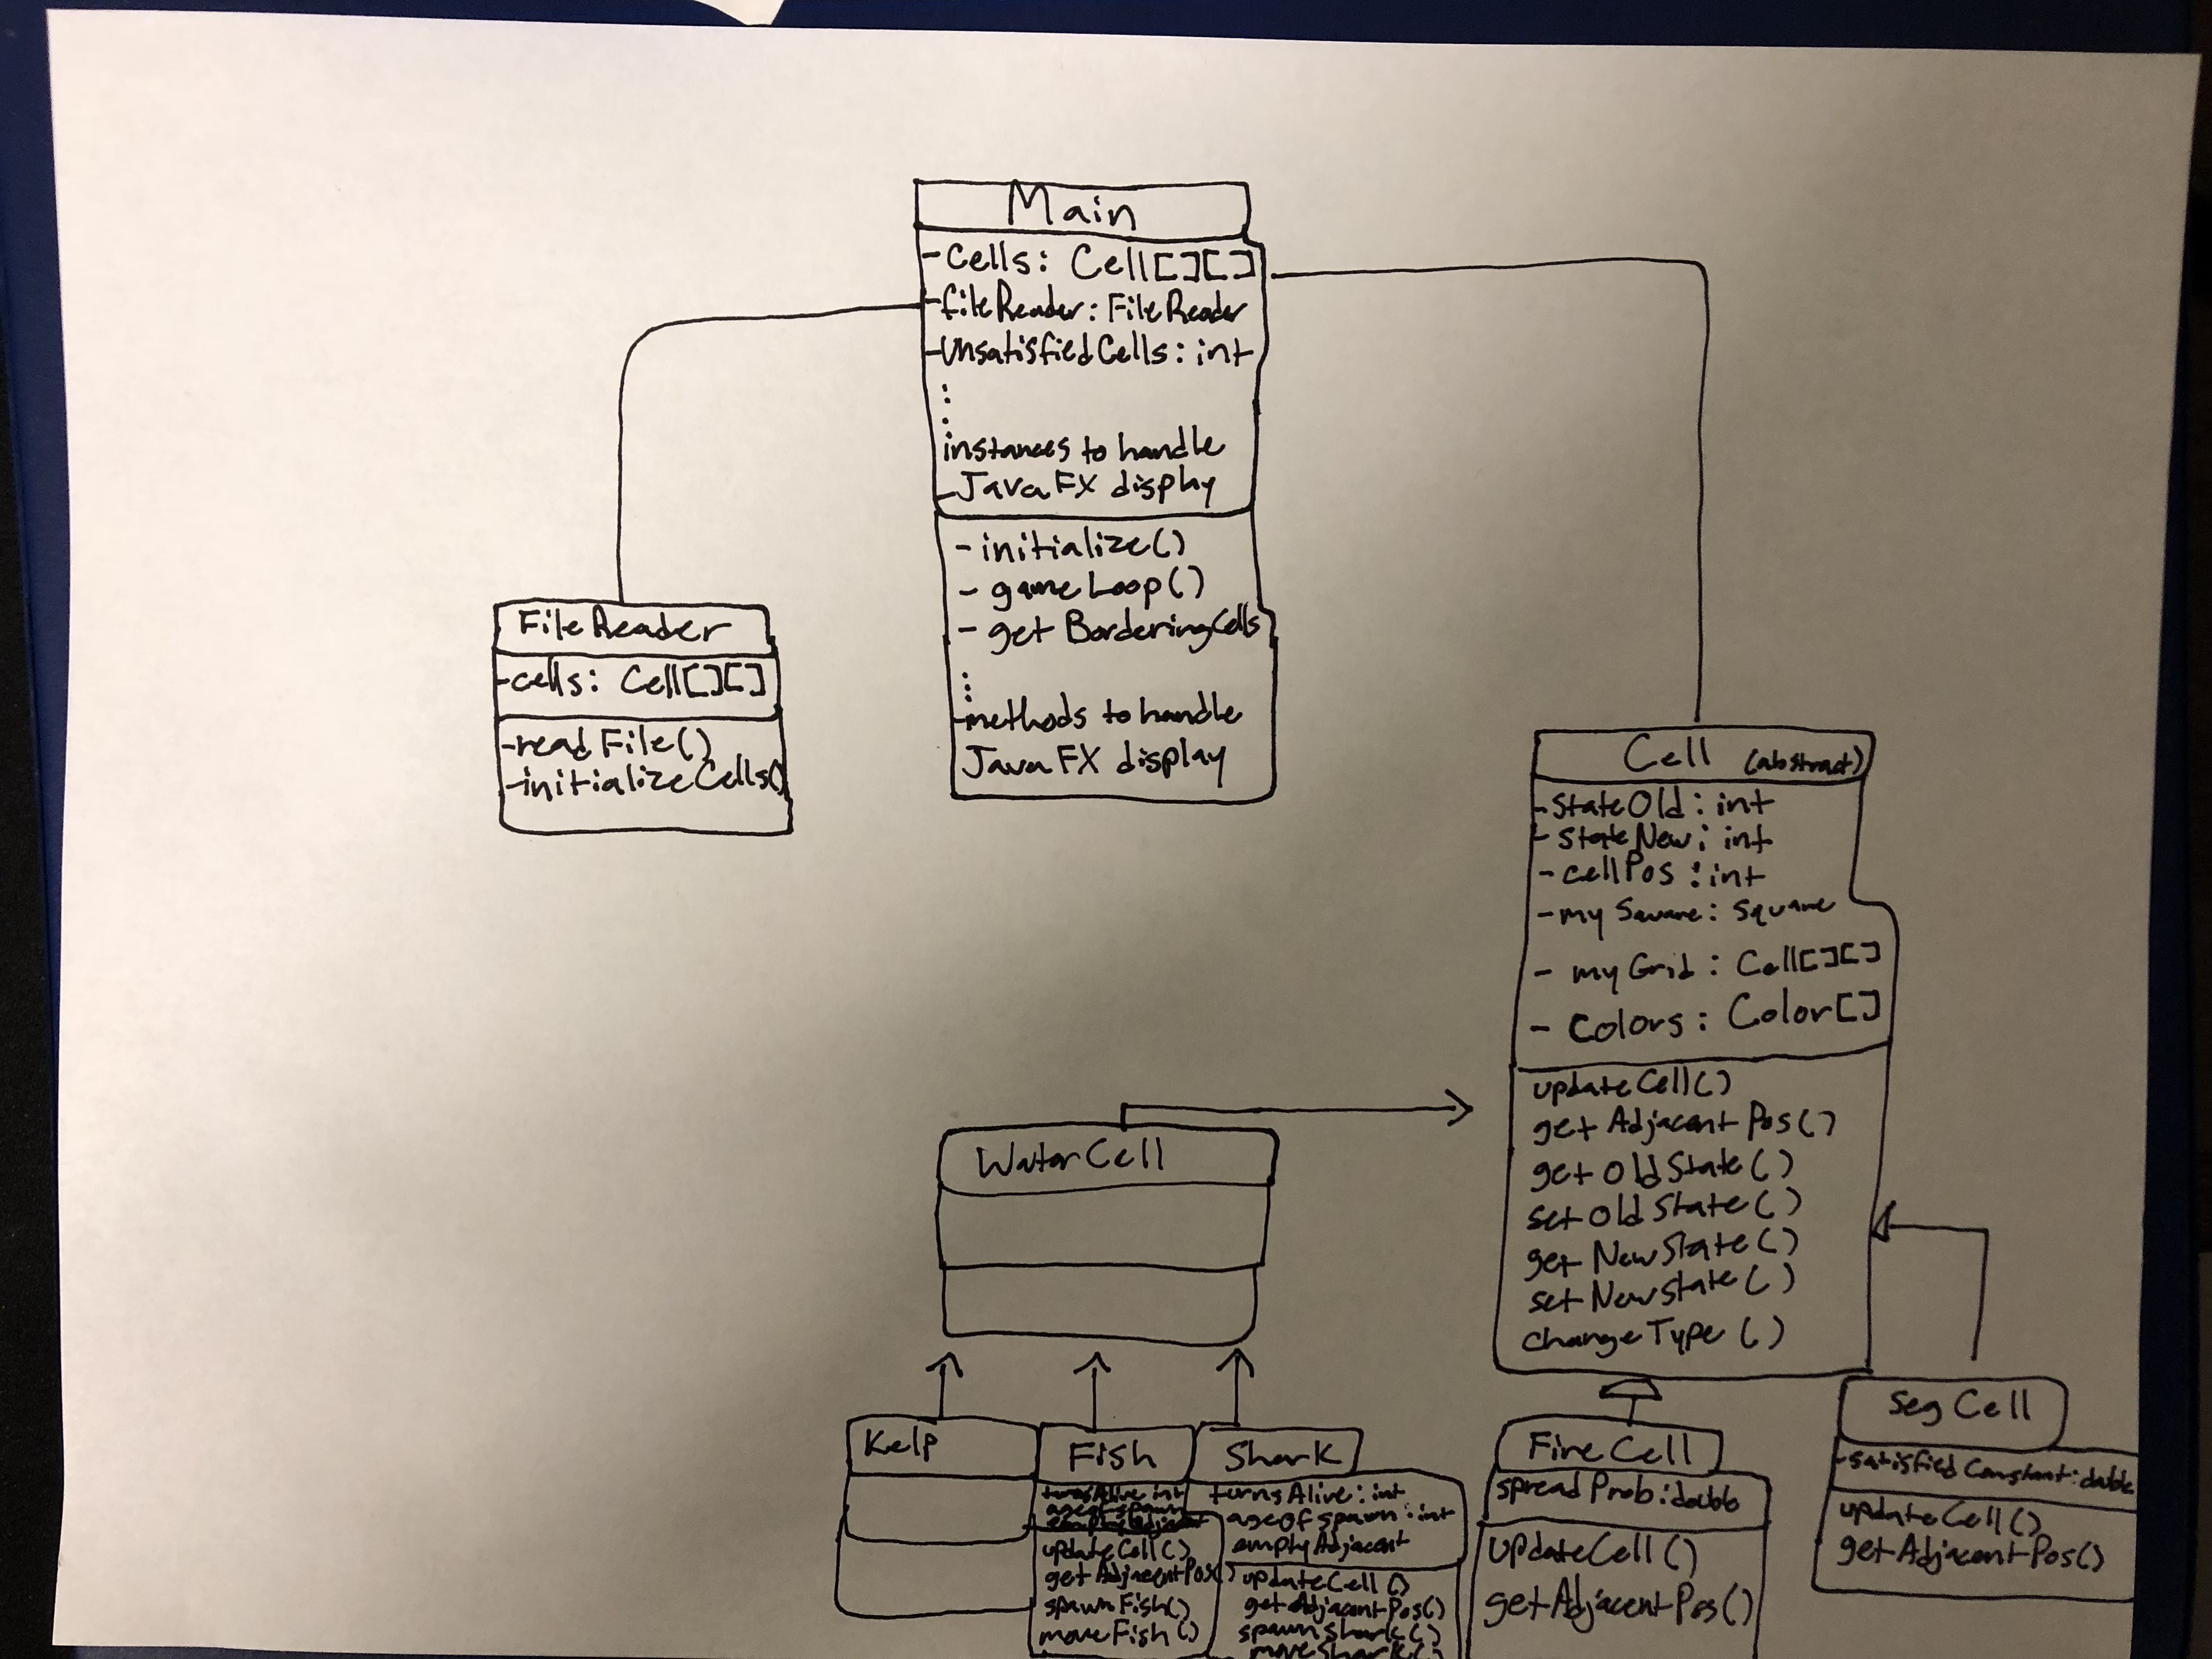 Main
- Cells: Cell[][]
- fileReader: FileReader
- UnsatisfiedCells: int
:
:
instances to handle
JavaFX display
- initialize()
- gameLoop()
- get BorderingCells
:
- methods to handle
JavaFX display
FileReader
- cells: Cell[][]
- readFile()
- initializeCells()
Cell (abstract)
- stateOld: int
- stateNew: int
- cellPos: int
- my Square: Square
- myGrid: Cell[][]
- Colors: Color[]
updateCell()
get AdjacentPos()
get OldState()
set OldState()
get NewState()
set NewState()
changeType()
WaterCell
Kelp
Fish
turnsAlive int
ageofspawn
emptyAdjacent
updateCell()
getAdjacentPos()
spawnFish()
moveFish()
Shark
turnsAlive: int
ageofspawn: int
emptyAdjacent
updateCell()
getAdjacentPos()
spawnShark()
moveShark()
FireCell
spreadProb: double
updateCell()
getAdjacentPos()
SegCell
- satisfied Constant: double
updateCell()
getAdjacentPos()